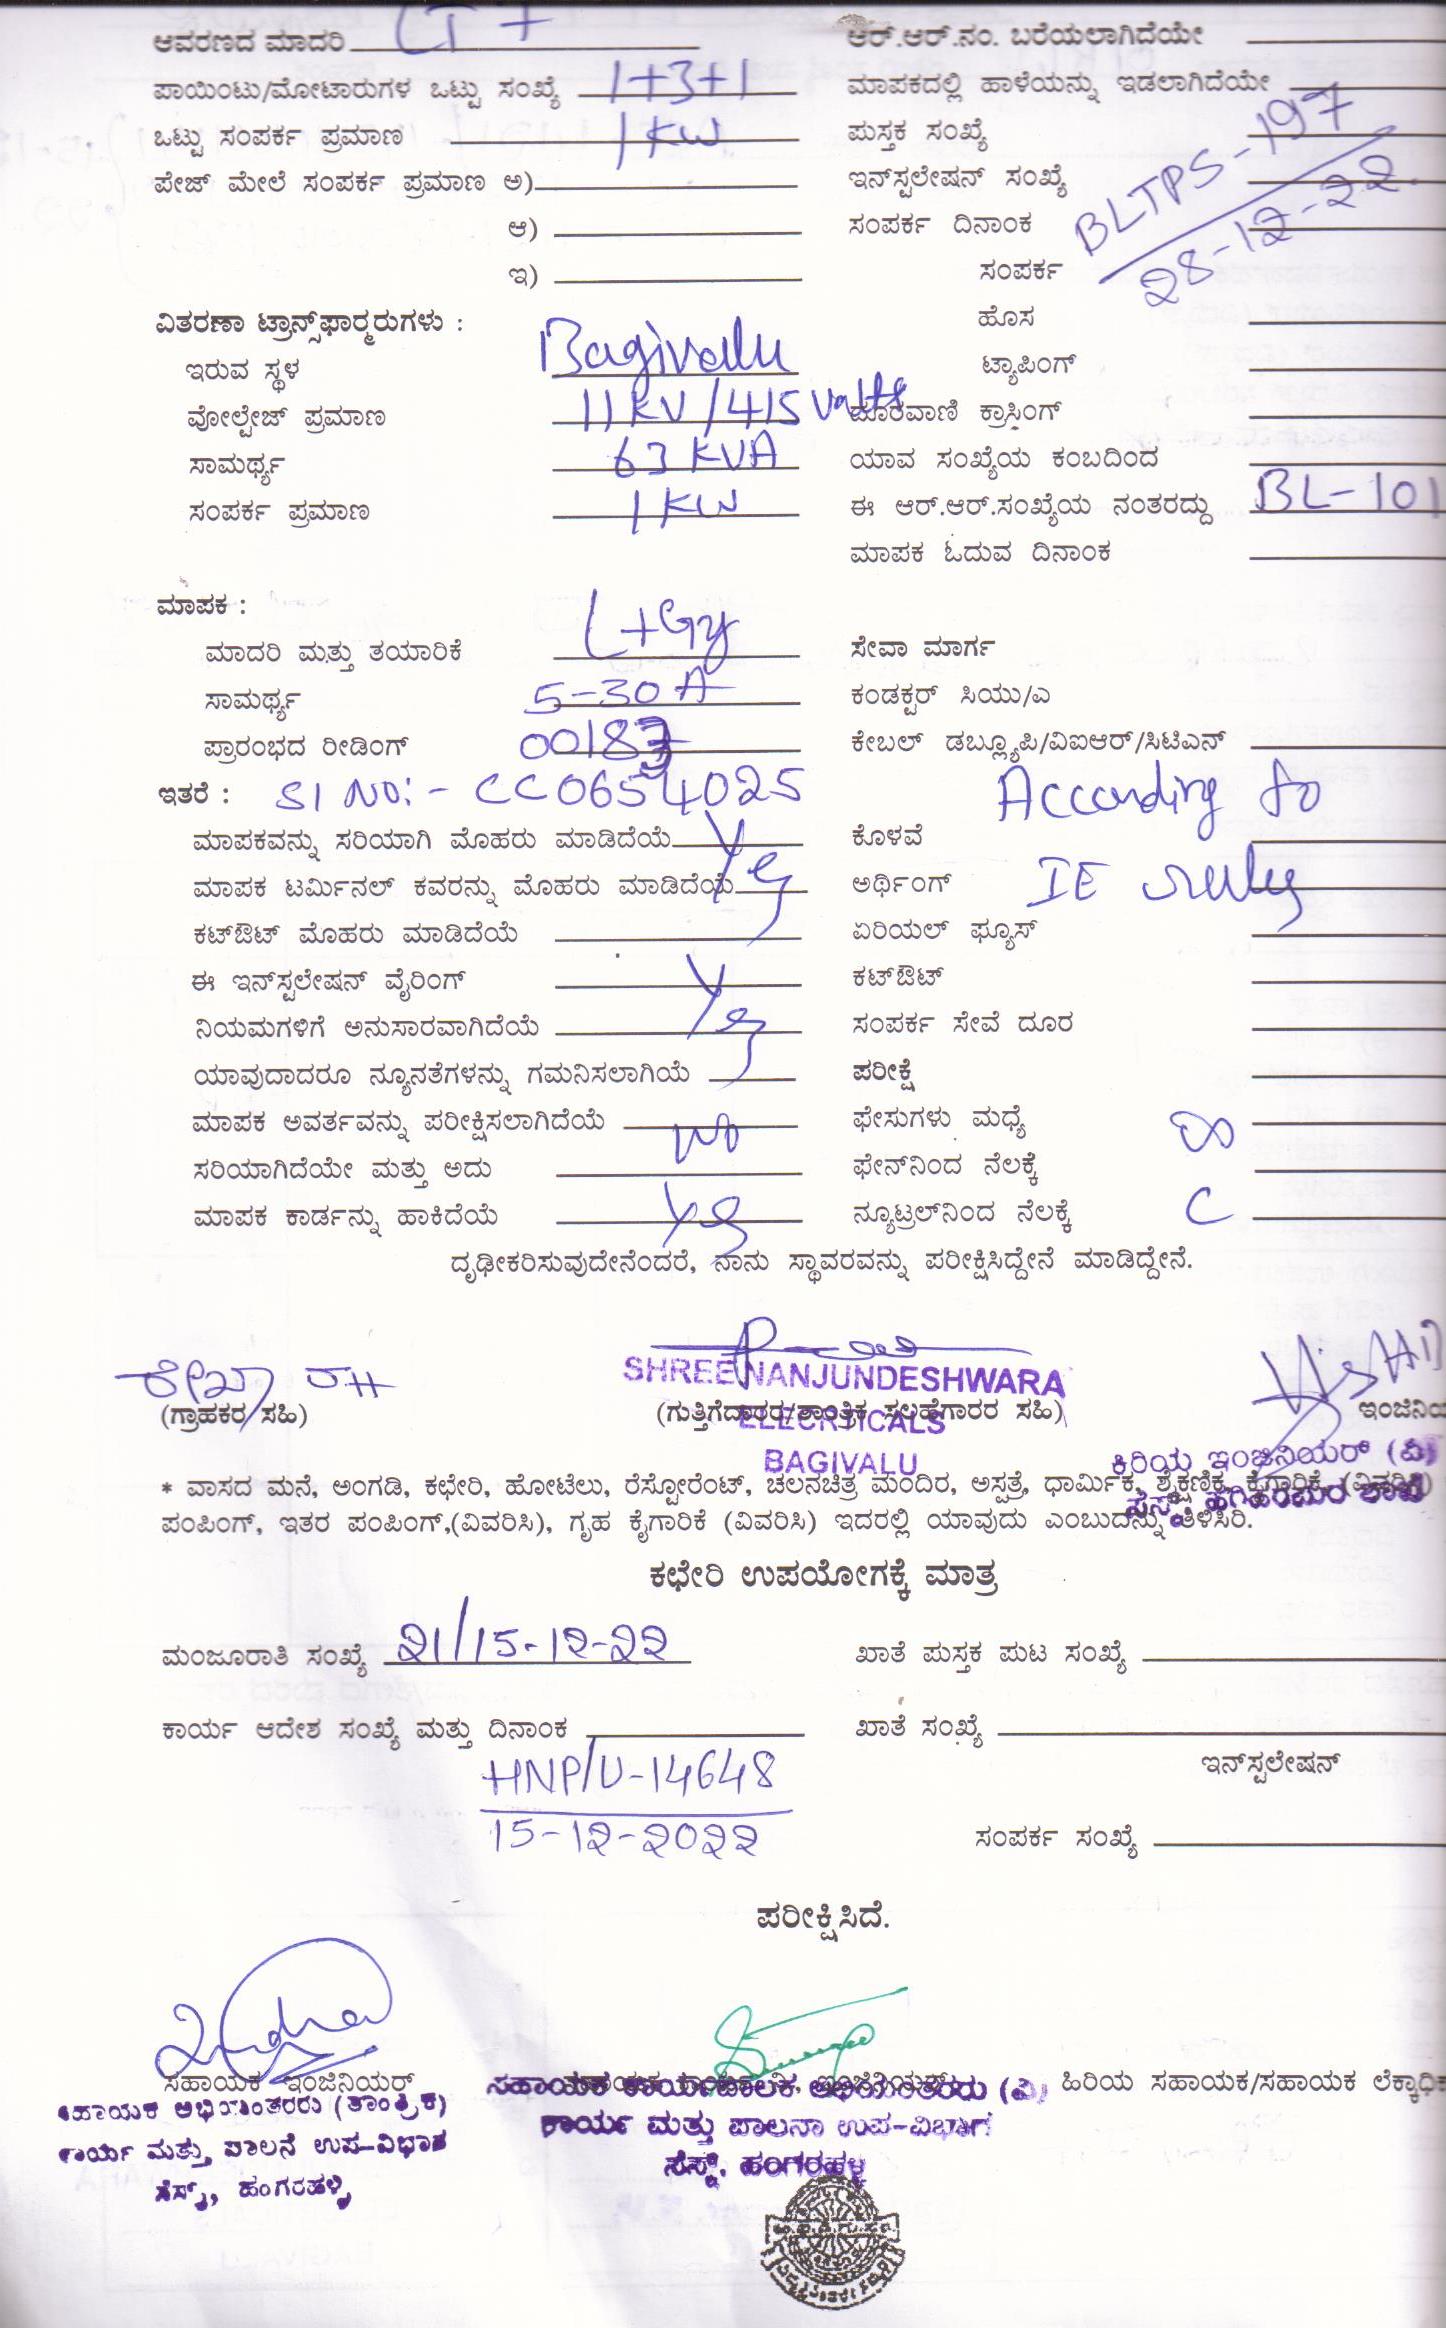 ಆವರಣದ ಮಾದರಿ
ಪಾಯಿಂಟು/ಮೋಟಾರುಗಳ ಒಟ್ಟು ಸಂಖ್ಯೆ 1+3+1
ಒಟ್ಟು ಸಂಪರ್ಕ ಪ್ರಮಾಣ 1 KW
ಪೇಜ್ ಮೇಲೆ ಸಂಪರ್ಕ ಪ್ರಮಾಣ ಅ)
ಆ)
ಇ)
ವಿತರಣಾ ಟ್ರಾನ್ಸ್‌ಫಾರ್‍ಮರುಗಳು :
ಇರುವ ಸ್ಥಳ Bagivalu
ವೋಲ್ಟೇಜ್ ಪ್ರಮಾಣ 11KV/415 Volts
ಸಾಮರ್ಥ್ಯ 63 KVA
ಸಂಪರ್ಕ ಪ್ರಮಾಣ 1 KW
ಆರ್.ಆರ್.ನಂ. ಬರೆಯಲಾಗಿದೆಯೇ
ಮಾಪಕದಲ್ಲಿ ಹಾಳೆಯನ್ನು ಇಡಲಾಗಿದೆಯೇ
ಪುಸ್ತಕ ಸಂಖ್ಯೆ
ಇನ್‌ಸ್ಟಲೇಷನ್ ಸಂಖ್ಯೆ
BLTPS-197
ಸಂಪರ್ಕ ದಿನಾಂಕ
28-12-22
ಸಂಪರ್ಕ
ಹೊಸ
ಟ್ಯಾಪಿಂಗ್
ದೂರವಾಣಿ ಕ್ರಾಸಿಂಗ್
ಯಾವ ಸಂಖ್ಯೆಯ ಕಂಬದಿಂದ
ಈ ಆರ್.ಆರ್.ಸಂಖ್ಯೆಯ ನಂತರದ್ದು BL-101
ಮಾಪಕ ಓದುವ ದಿನಾಂಕ
ಮಾಪಕ :
ಮಾದರಿ ಮತ್ತು ತಯಾರಿಕೆ L+Gy
ಸಾಮರ್ಥ್ಯ 5-30 A
ಪ್ರಾರಂಭದ ರೀಡಿಂಗ್
ಇತರೆ : Sl No:- CC0654025
ಮಾಪಕವನ್ನು ಸರಿಯಾಗಿ ಮೊಹರು ಮಾಡಿದೆಯೆ
ಮಾಪಕ ಟರ್ಮಿನಲ್ ಕವರನ್ನು ಮೊಹರು ಮಾಡಿದೆಯೆ Yes
ಕಟ್‌ಔಟ್ ಮೊಹರು ಮಾಡಿದೆಯೆ
ಈ ಇನ್‌ಸ್ಟಲೇಷನ್ ವೈರಿಂಗ್
ನಿಯಮಗಳಿಗೆ ಅನುಸಾರವಾಗಿದೆಯೆ Yes
ಯಾವುದಾದರೂ ನ್ಯೂನತೆಗಳನ್ನು ಗಮನಿಸಲಾಗಿಯೆ
ಮಾಪಕ ಅವರ್ತವನ್ನು ಪರೀಕ್ಷಿಸಲಾಗಿದೆಯೆ No
ಸರಿಯಾಗಿದೆಯೇ ಮತ್ತು ಅದು
ಮಾಪಕ ಕಾರ್ಡನ್ನು ಹಾಕಿದೆಯೆ Yes
ಸೇವಾ ಮಾರ್ಗ
ಕಂಡಕ್ಟರ್ ಸಿಯು/ಎ
ಕೇಬಲ್ ಡಬ್ಲ್ಯೂಪಿ/ವಿಐಆರ್/ಸಿಟಿಎನ್
According to
ಕೊಳವೆ
ಅರ್ಥಿಂಗ್ IE rules
ಏರಿಯಲ್ ಫ್ಯೂಸ್
ಕಟ್‌ಔಟ್
ಸಂಪರ್ಕ ಸೇವೆ ದೂರ
ಪರೀಕ್ಷೆ
ಫೇಸುಗಳು ಮಧ್ಯೆ
ಫೇನ್‌ನಿಂದ ನೆಲಕ್ಕೆ
ನ್ಯೂಟ್ರಲ್‌ನಿಂದ ನೆಲಕ್ಕೆ
ದೃಢೀಕರಿಸುವುದೇನೆಂದರೆ, ನಾನು ಸ್ಥಾವರವನ್ನು ಪರೀಕ್ಷಿಸಿದ್ದೇನೆ ಮಾಡಿದ್ದೇನೆ.
SHREE NANJUNDESHWARA
ELECRTICALS
BAGIVALU
(ಗ್ರಾಹಕರ ಸಹಿ)
(ಗುತ್ತಿಗೆದಾರರ/ತಾಂತ್ರಿಕ ಸಲಹೆಗಾರರ ಸಹಿ)
ಕಿರಿಯ ಇಂಜಿನಿಯರ್ (ವಿ)
* ವಾಸದ ಮನೆ, ಅಂಗಡಿ, ಕಛೇರಿ, ಹೋಟೆಲು, ರೆಸ್ಟೋರೆಂಟ್, ಚಲನಚಿತ್ರ ಮಂದಿರ, ಅಸ್ಪತ್ರೆ, ಧಾರ್ಮಿಕ, ಶೈಕ್ಷಣಿಕ, ಕೈಗಾರಿಕೆ, (ವಿವರಿಸಿ)
ಪಂಪಿಂಗ್, ಇತರ ಪಂಪಿಂಗ್,(ವಿವರಿಸಿ), ಗೃಹ ಕೈಗಾರಿಕೆ (ವಿವರಿಸಿ) ಇದರಲ್ಲಿ ಯಾವುದು ಎಂಬುದನ್ನು ತಿಳಿಸಿರಿ.
ಕಛೇರಿ ಉಪಯೋಗಕ್ಕೆ ಮಾತ್ರ
ಮಂಜೂರಾತಿ ಸಂಖ್ಯೆ 21/15-12-22
ಖಾತೆ ಪುಸ್ತಕ ಪುಟ ಸಂಖ್ಯೆ
ಕಾರ್ಯ ಆದೇಶ ಸಂಖ್ಯೆ ಮತ್ತು ದಿನಾಂಕ
ಖಾತೆ ಸಂಖ್ಯೆ
HNP/U-14648
15-12-2022
ಇನ್‌ಸ್ಟಲೇಷನ್
ಸಂಪರ್ಕ ಸಂಖ್ಯೆ
ಪರೀಕ್ಷಿಸಿದೆ.
ಸಹಾಯಕ ಇಂಜಿನಿಯರ್
ಸಹಾಯಕ ಅಭಿಯಂತರರು (ತಾಂತ್ರಿಕ)
ಕಾರ್ಯ ಮತ್ತು ಪಾಲನೆ ಉಪ-ವಿಭಾಗ
ಸೆಸ್ಕ್, ಹಂಗರಹಳ್ಳಿ
ಸಹಾಯಕ ಕಾರ್ಯಪಾಲಕ ಅಭಿಯಂತರರು (ವಿ)
ಕಾರ್ಯ ಮತ್ತು ಪಾಲನಾ ಉಪ-ವಿಭಾಗ
ಸೆಸ್ಕ್, ಹಂಗರಹಳ್ಳಿ
ಹಿರಿಯ ಸಹಾಯಕ/ಸಹಾಯಕ ಲೆಕ್ಕಾಧಿಕ